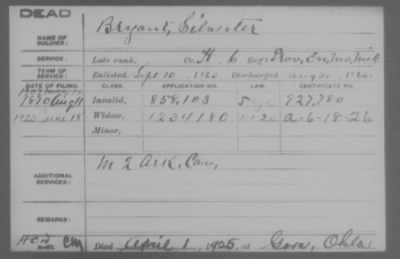 DEAD
NAME OF SOLDIER: Bryant, Silvester
SERVICE: Late rank, Co. H, 6 Reg't Prov. En. Mo. Mil.
TERM OF SERVICE: Enlisted Sept 10, 186 Discharged Aug 186
DATE OF FILING. CLASS. APPLICATION NO. LAW. CERTIFICATE NO.
1890 Aug 11 Invalid, 858,103 927,780
1925 June 18 Widow, 1234180 A-6-18-26
Minor,
ADDITIONAL SERVICES: M 2 Ark. Cav.
REMARKS:
Died April 1, 1925, at Gore, Okla